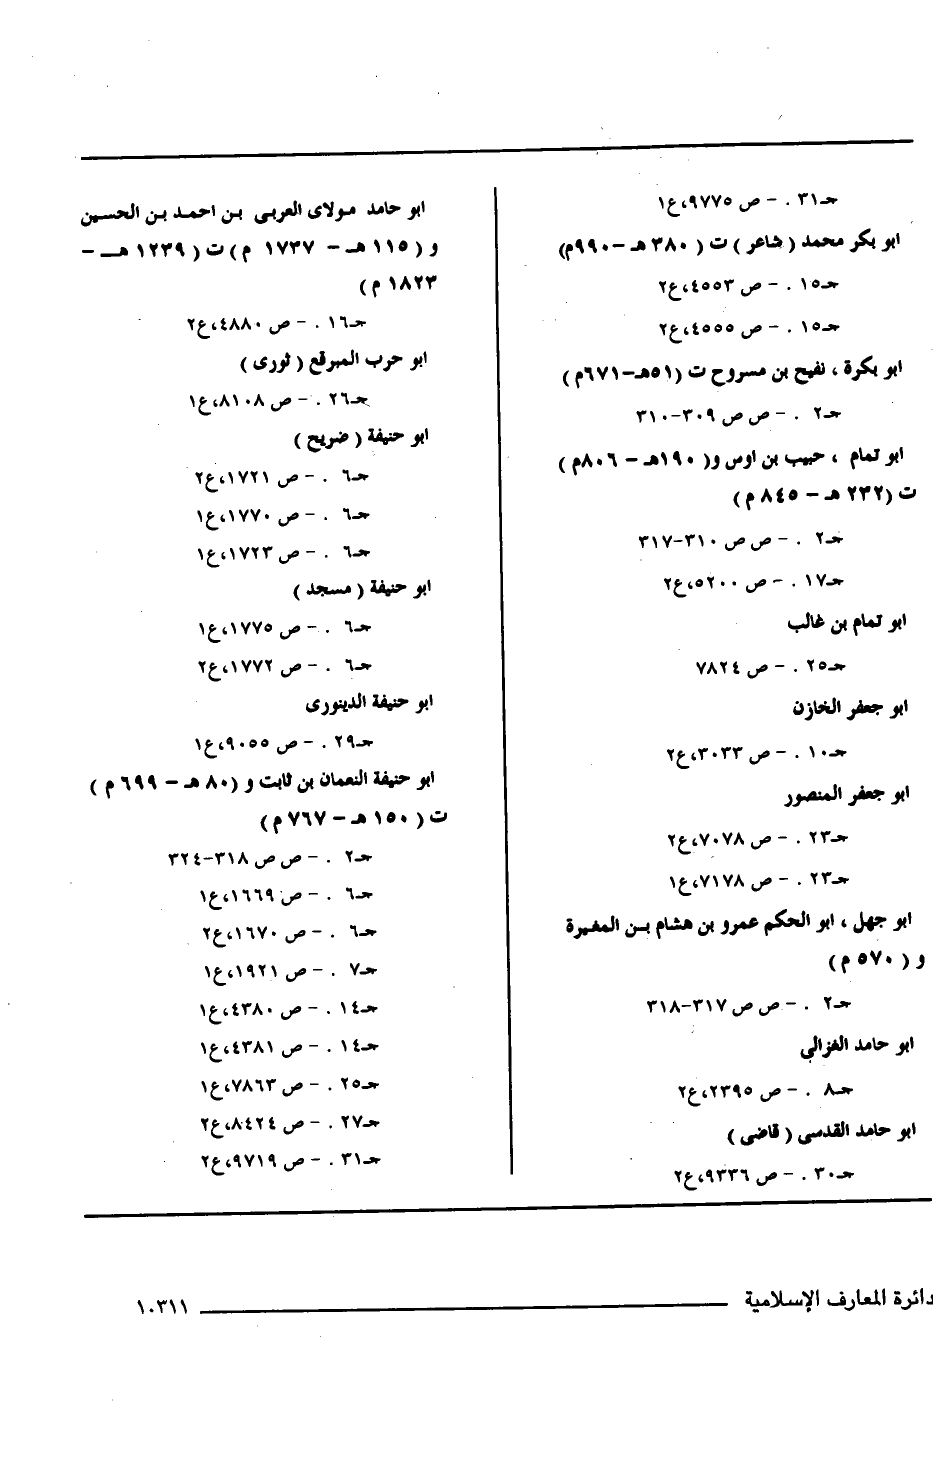 جـ٣١ . - ص ٩٧٧٥،ع١
ابو بكر محمد ( شاعر ) ت ( ٣٨٠ هـ -٩٩٠م)
جـ١٥ . - ص ٤٥٥٣،ع٢
جـ١٥ . - ص ٤٥٥٥،ع٢
ابو بكرة ، نفيح بن مسروح ت (٥١هـ-٦٧١م )
جـ٢ . - ص ص ٣٠٩-٣١٠
ابو تمام ، حبيب بن اوس و( ١٩٠هـ - ٨٠٦م )
ت (٢٣٢ هـ - ٨٤٥ م )
جـ٢ . - ص ص ٣١٠-٣١٧
جـ١٧ . - ص ٥٢٠٠،ع٢
ابو تمام بن غالب
جـ٢٥ . - ص ٧٨٢٤
ابو جعفر الخازن
جـ١٠ . - ص ٣٠٣٣،ع٢
ابو جعفر المنصور
جـ٢٣ . - ص ٧٠٧٨،ع٢
جـ٢٣ . - ص ٧١٧٨،ع١
ابو جهل ، ابو الحكم عمرو بن هشام بـن المغيرة
و ( ٥٧٠ م )
جـ٢ . - ص ص ٣١٧-٣١٨
ابو حامد الغزالي
جـ٨ . - ص ٢٣٩٥،ع٢
ابو حامد القدسى ( قاضى )
جـ٣٠ . - ص ٩٣٣٦،ع٢
ابو حامد مـولاى العربـى بـن احمـد بـن الحسـين
و ( ١١٥ هـ - ١٧٣٧ م ) ت ( ١٢٣٩ هـ -
١٨٢٣ م )
جـ١٦ . - ص ٤٨٨٠،ع٢
ابو حرب المبرقع ( ثورى )
جـ٢٦ . - ص ٨١٠٨،ع١
ابو حنيفة ( ضريح )
جـ٦ . - ص ١٧٢١،ع٢
جـ٦ . - ص ١٧٧٠،ع١
جـ٦ . - ص ١٧٢٣،ع١
ابو حنيفة ( مسجد )
جـ٦ . - ص ١٧٧٥،ع١
جـ٦ . - ص ١٧٧٢،ع٢
ابو حنيفة الدينورى
جـ٢٩ . - ص ٩٠٥٥،ع١
ابو حنيفة النعمان بن ثابت و (٨٠ هـ - ٦٩٩ م )
ت ( ١٥٠ هـ - ٧٦٧ م )
جـ٢ . - ص ص ٣١٨-٣٢٤
جـ٦ . - ص ١٦٦٩،ع١
جـ٦ . - ص ١٦٧٠،ع٢
جـ٧ . - ص ١٩٢١،ع١
جـ١٤ . - ص ٤٣٨٠،ع١
جـ١٤ . - ص ٤٣٨١،ع١
جـ٢٥ . - ص ٧٨٦٣،ع١
جـ٢٧ . - ص ٨٤٢٤،ع٢
جـ٣١ . - ص ٩٧١٩،ع٢
دائرة المعارف الإسلامية
١٠٣١١